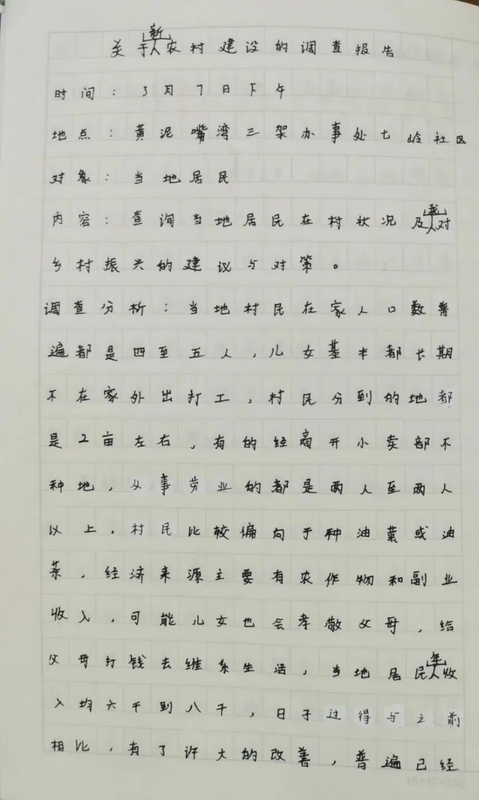 关于新农村建设的调查报告
时间：3月7日下午
地点：黄泥嘴湾三架办事处七岭社区
对象：当地居民
内容：查询当地居民在村状况及对
乡村振兴的建议与对策。
调查分析：当地村民在家人口数普
遍都是四至五人，儿女基本都长期
不在家外出打工，村民分到的地都
是2亩左右，有的经商开小卖部不
种地，从事劳业的都是两人至两人
以上，村民比较偏向于种油菜或油
茶，经济来源主要有农作物和副业
收入，可能儿女也会孝敬父母，给
父母打钱去维系生活，当地居民年收
入均六千到八千，日子过得与之前
相比，有了许大的改善，普遍已经